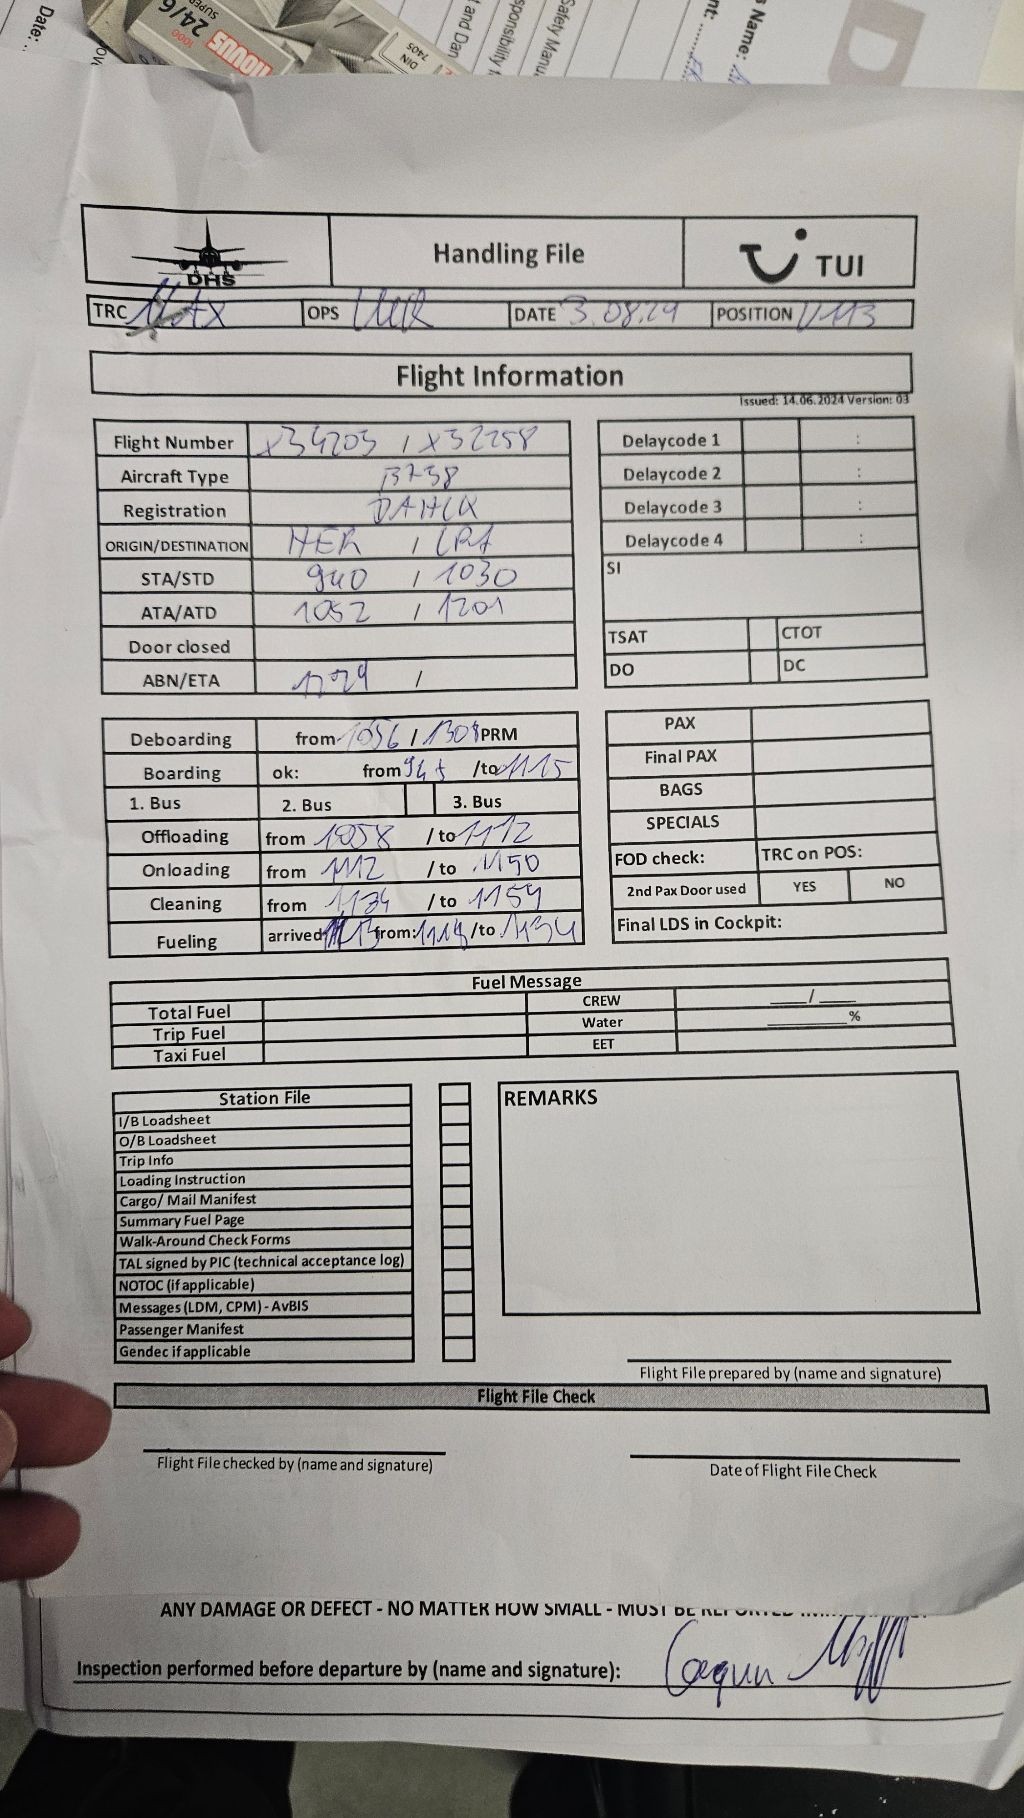 Date: ..
1000
24/6
SUPER
novus
DIN
7405
and Dan
sponsibility
Safety Manu
nt: ......
s Name:
DHS
Handling File
TUI
TRC Max OPS DATE 3.08.24 POSITION V113
Flight Information
Issued: 14.06.2024 Version: 03
Flight Number X34203 / X32258
Aircraft Type B738
Registration DAHLK
ORIGIN/DESTINATION HER / LPA
STA/STD 940 / 1030
ATA/ATD 1052 / 1201
Door closed
ABN/ETA /
Delaycode 1 :
Delaycode 2 :
Delaycode 3 :
Delaycode 4 :
SI
TSAT CTOT
DO DC
Deboarding from 1056 / PRM
Boarding ok: from 945 /to 1115
1. Bus 2. Bus 3. Bus
Offloading from 1058 / to 1112
Onloading from 1112 / to 1150
Cleaning from 1134 / to 1154
Fueling arrived 13 from: 1114 /to 1134
PAX
Final PAX
BAGS
SPECIALS
FOD check: TRC on POS:
2nd Pax Door used YES NO
Final LDS in Cockpit:
Fuel Message
Total Fuel CREW ____/____
Trip Fuel Water ________%
Taxi Fuel EET
Station File
I/B Loadsheet
O/B Loadsheet
Trip Info
Loading Instruction
Cargo/ Mail Manifest
Summary Fuel Page
Walk-Around Check Forms
TAL signed by PIC (technical acceptance log)
NOTOC (if applicable)
Messages (LDM, CPM) - AvBIS
Passenger Manifest
Gendec if applicable
REMARKS
Flight File prepared by (name and signature)
Flight File Check
Flight File checked by (name and signature)
Date of Flight File Check
ANY DAMAGE OR DEFECT - NO MATTER HOW SMALL - MUST BE REPORTED
Inspection performed before departure by (name and signature):